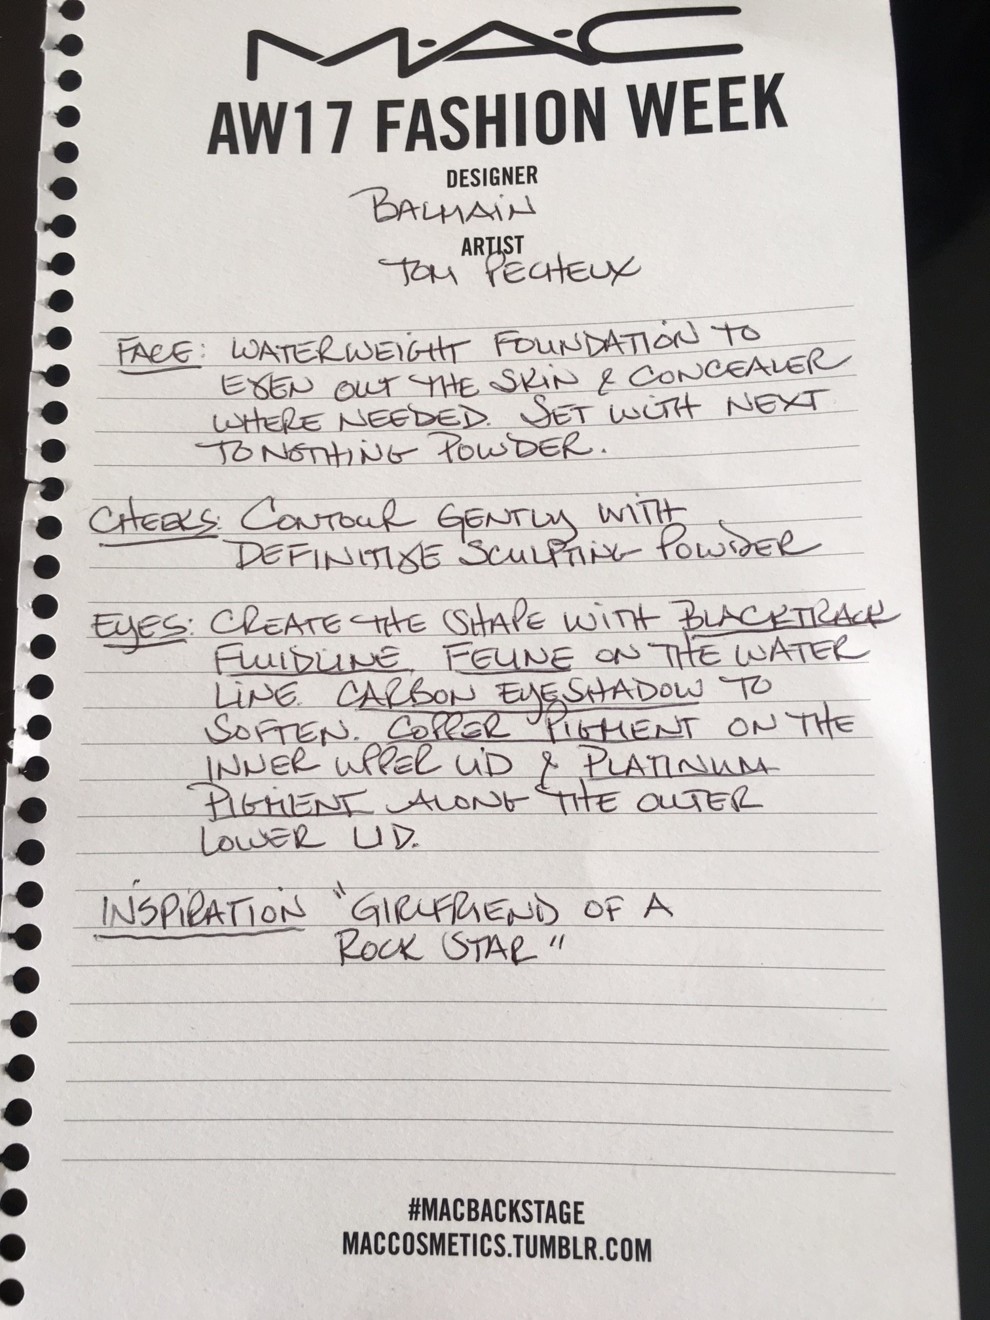 M·A·C
AW17 FASHION WEEK
DESIGNER
BALMAIN
ARTIST
TOM PECHEUX
FACE: WATERWEIGHT FOUNDATION TO
EVEN OUT THE SKIN & CONCEALER
WHERE NEEDED. SET WITH NEXT
TO NOTHING POWDER.
CHEEKS: CONTOUR GENTLY WITH
DEFINITIVE SCULPTING POWDER
EYES: CREATE THE SHAPE WITH BLACKTRACK
FLUIDLINE. FELINE ON THE WATER
LINE. CARBON EYESHADOW TO
SOFTEN. COPPER PIGMENT ON THE
INNER UPPER LID & PLATINUM
PIGMENT ALONG THE OUTER
LOWER LID.
INSPIRATION "GIRLFRIEND OF A
ROCK STAR"
#MACBACKSTAGE
MACCOSMETICS.TUMBLR.COM